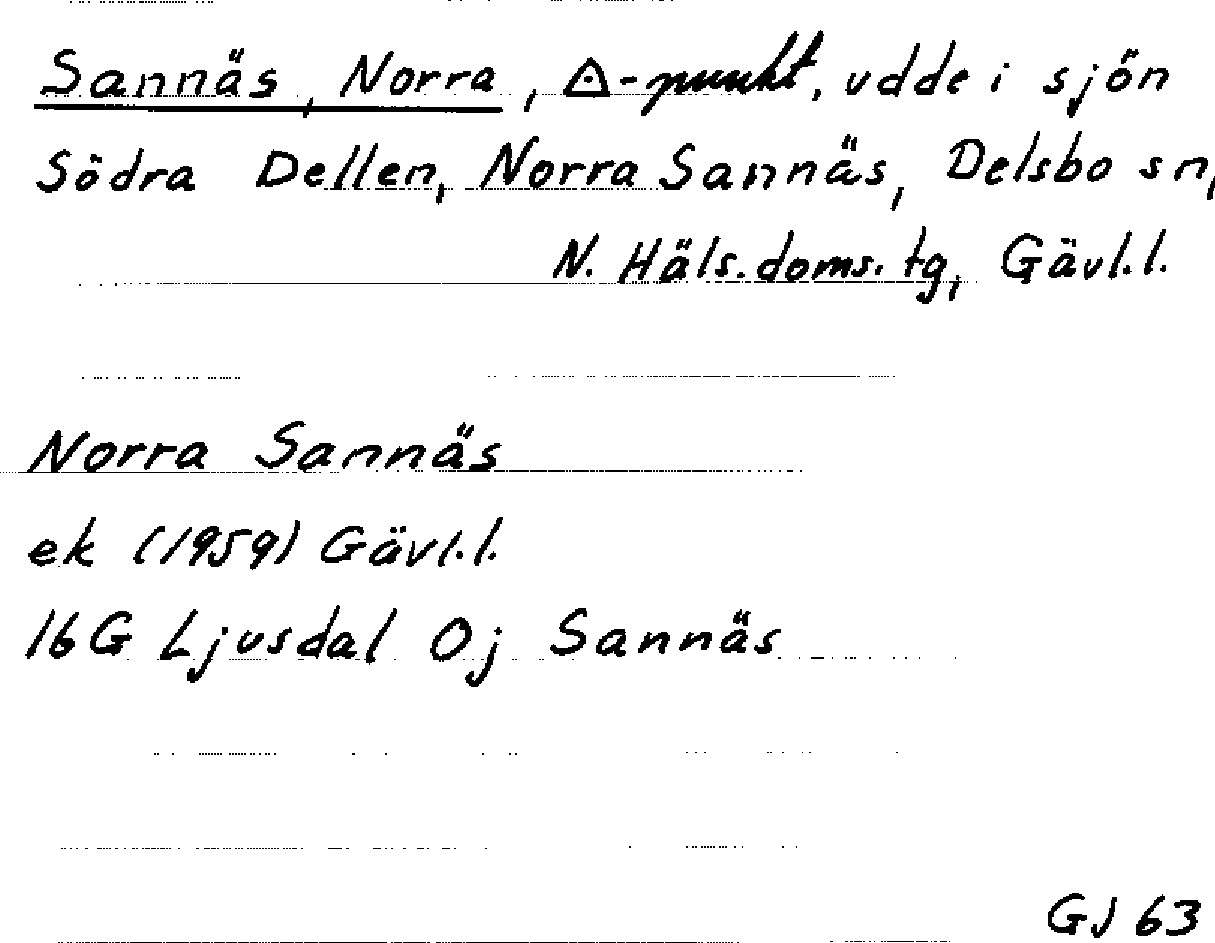 Sannäs, Norra, △-punkt, udde i sjön
Södra Dellen, Norra Sannäs, Delsbo sn,
N. Häls. doms. tg, Gävl.l.
Norra Sannäs
ek (1959) Gävl.l.
16G Ljusdal 0j Sannäs
GJ 63